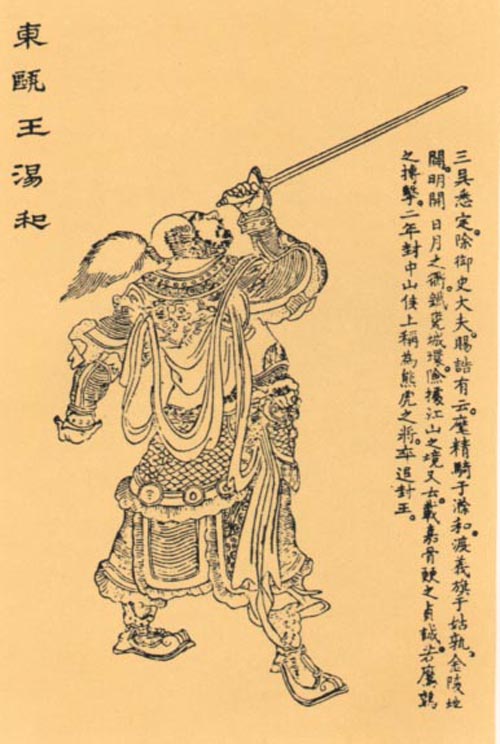 東甌王湯和
三吳悉定。除御史大夫。賜誥有云。麾精騎于滁和。渡義旗于姑孰。金陵地
闢。明開日月之衢。鐵瓮城環。險據江山之境。又云。骨鯁之貞誠。若鷹鸇
之搏擊。二年封中山侯。上稱為熊虎之將。卒追封王。